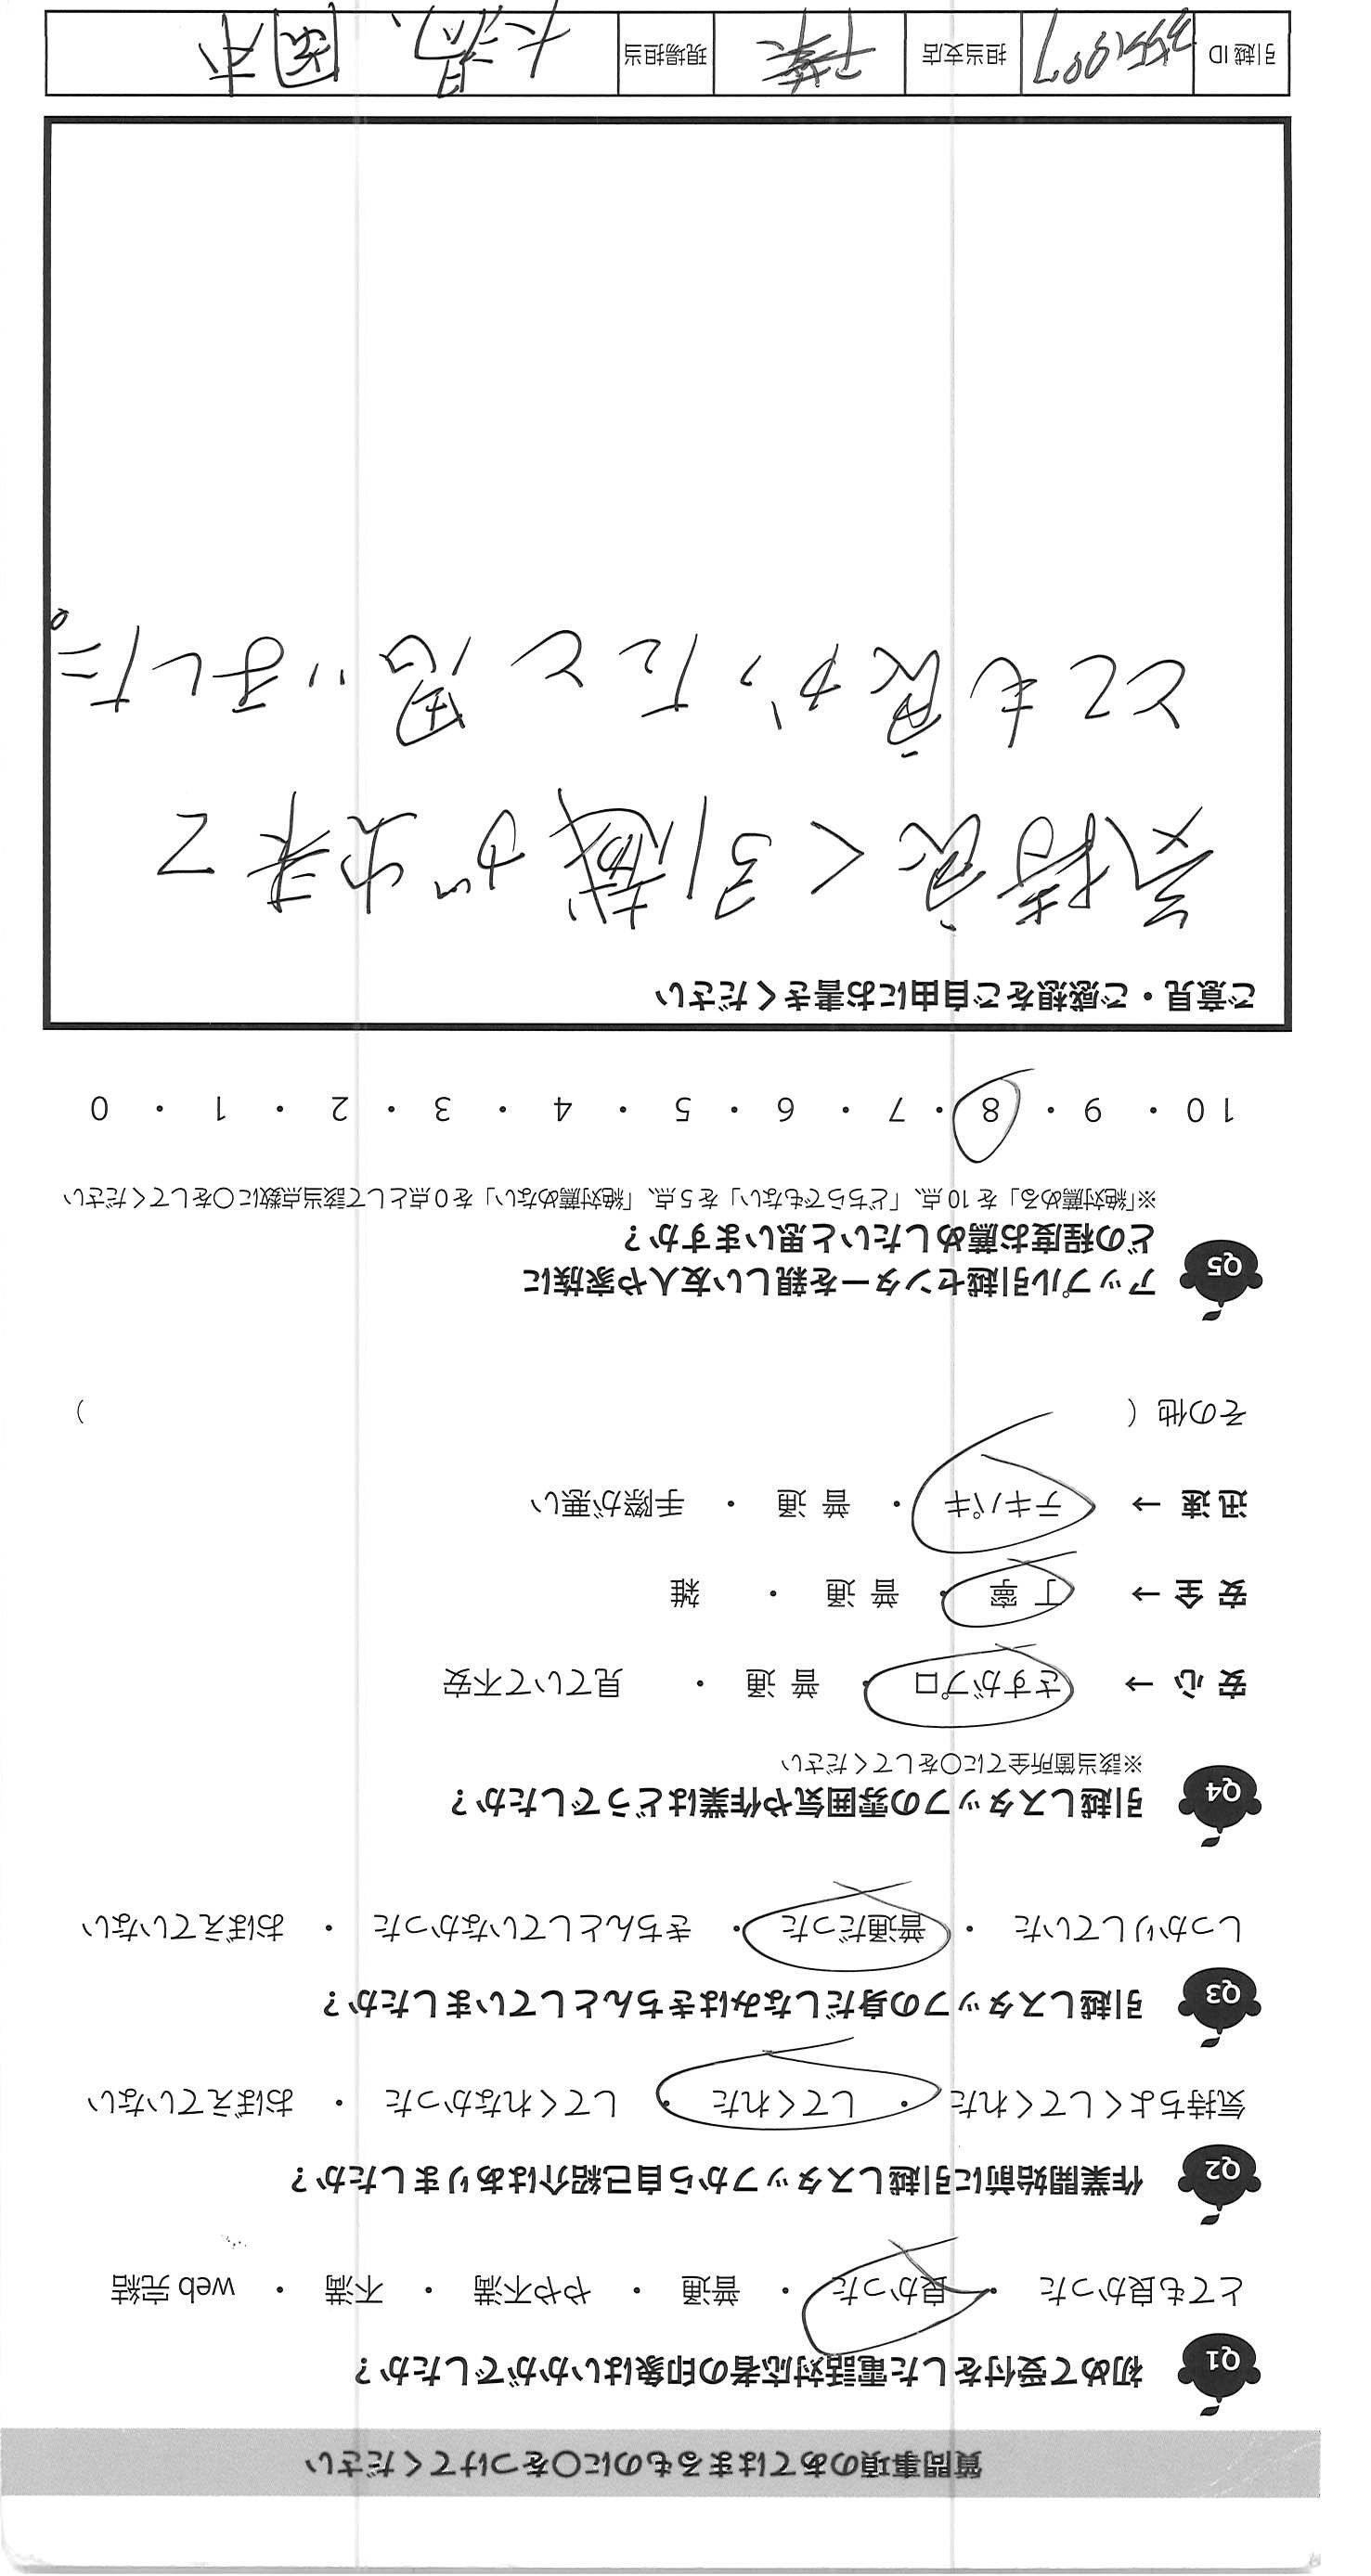 質問事項のあてはまるものに〇をつけてください
Q1 初めて受付をした電話対応者の印象はいかがでしたか？
とても良かった ・ 良かった ・ 普通 ・ やや不満 ・ 不満 ・ web 完結
Q2 作業開始前に引越しスタッフから自己紹介はありましたか？
気持ちよくしてくれた ・ してくれた ・ してくれなかった ・ おぼえていない
Q3 引越しスタッフの身だしなみはきちんとしていましたか？
しっかりしていた ・ 普通だった ・ きちんとしていなかった ・ おぼえていない
Q4 引越しスタッフの雰囲気や作業はどうでしたか？
※該当箇所全てに〇をしてください
安 心 → さすがプロ ・ 普 通 ・ 見ていて不安
安 全 → 丁 寧 ・ 普 通 ・ 雑
迅 速 → テキパキ ・ 普 通 ・ 手際が悪い
その他 （ ）
Q5 アップル引越センターを親しい友人や家族に
どの程度お薦めしたいと思いますか？
※「絶対薦める」を 10 点、「どちらでもない」を 5 点、「絶対薦めない」を 0 点として該当点数に〇をしてください
10 ・ 9 ・ 8 ・ 7 ・ 6 ・ 5 ・ 4 ・ 3 ・ 2 ・ 1 ・ 0
ご意見・ご感想をご自由にお書きください
気持良く引越が出来て
とても良かったと思いました。
引越 ID 担当支店 千葉 現場担当 大湯、岡本